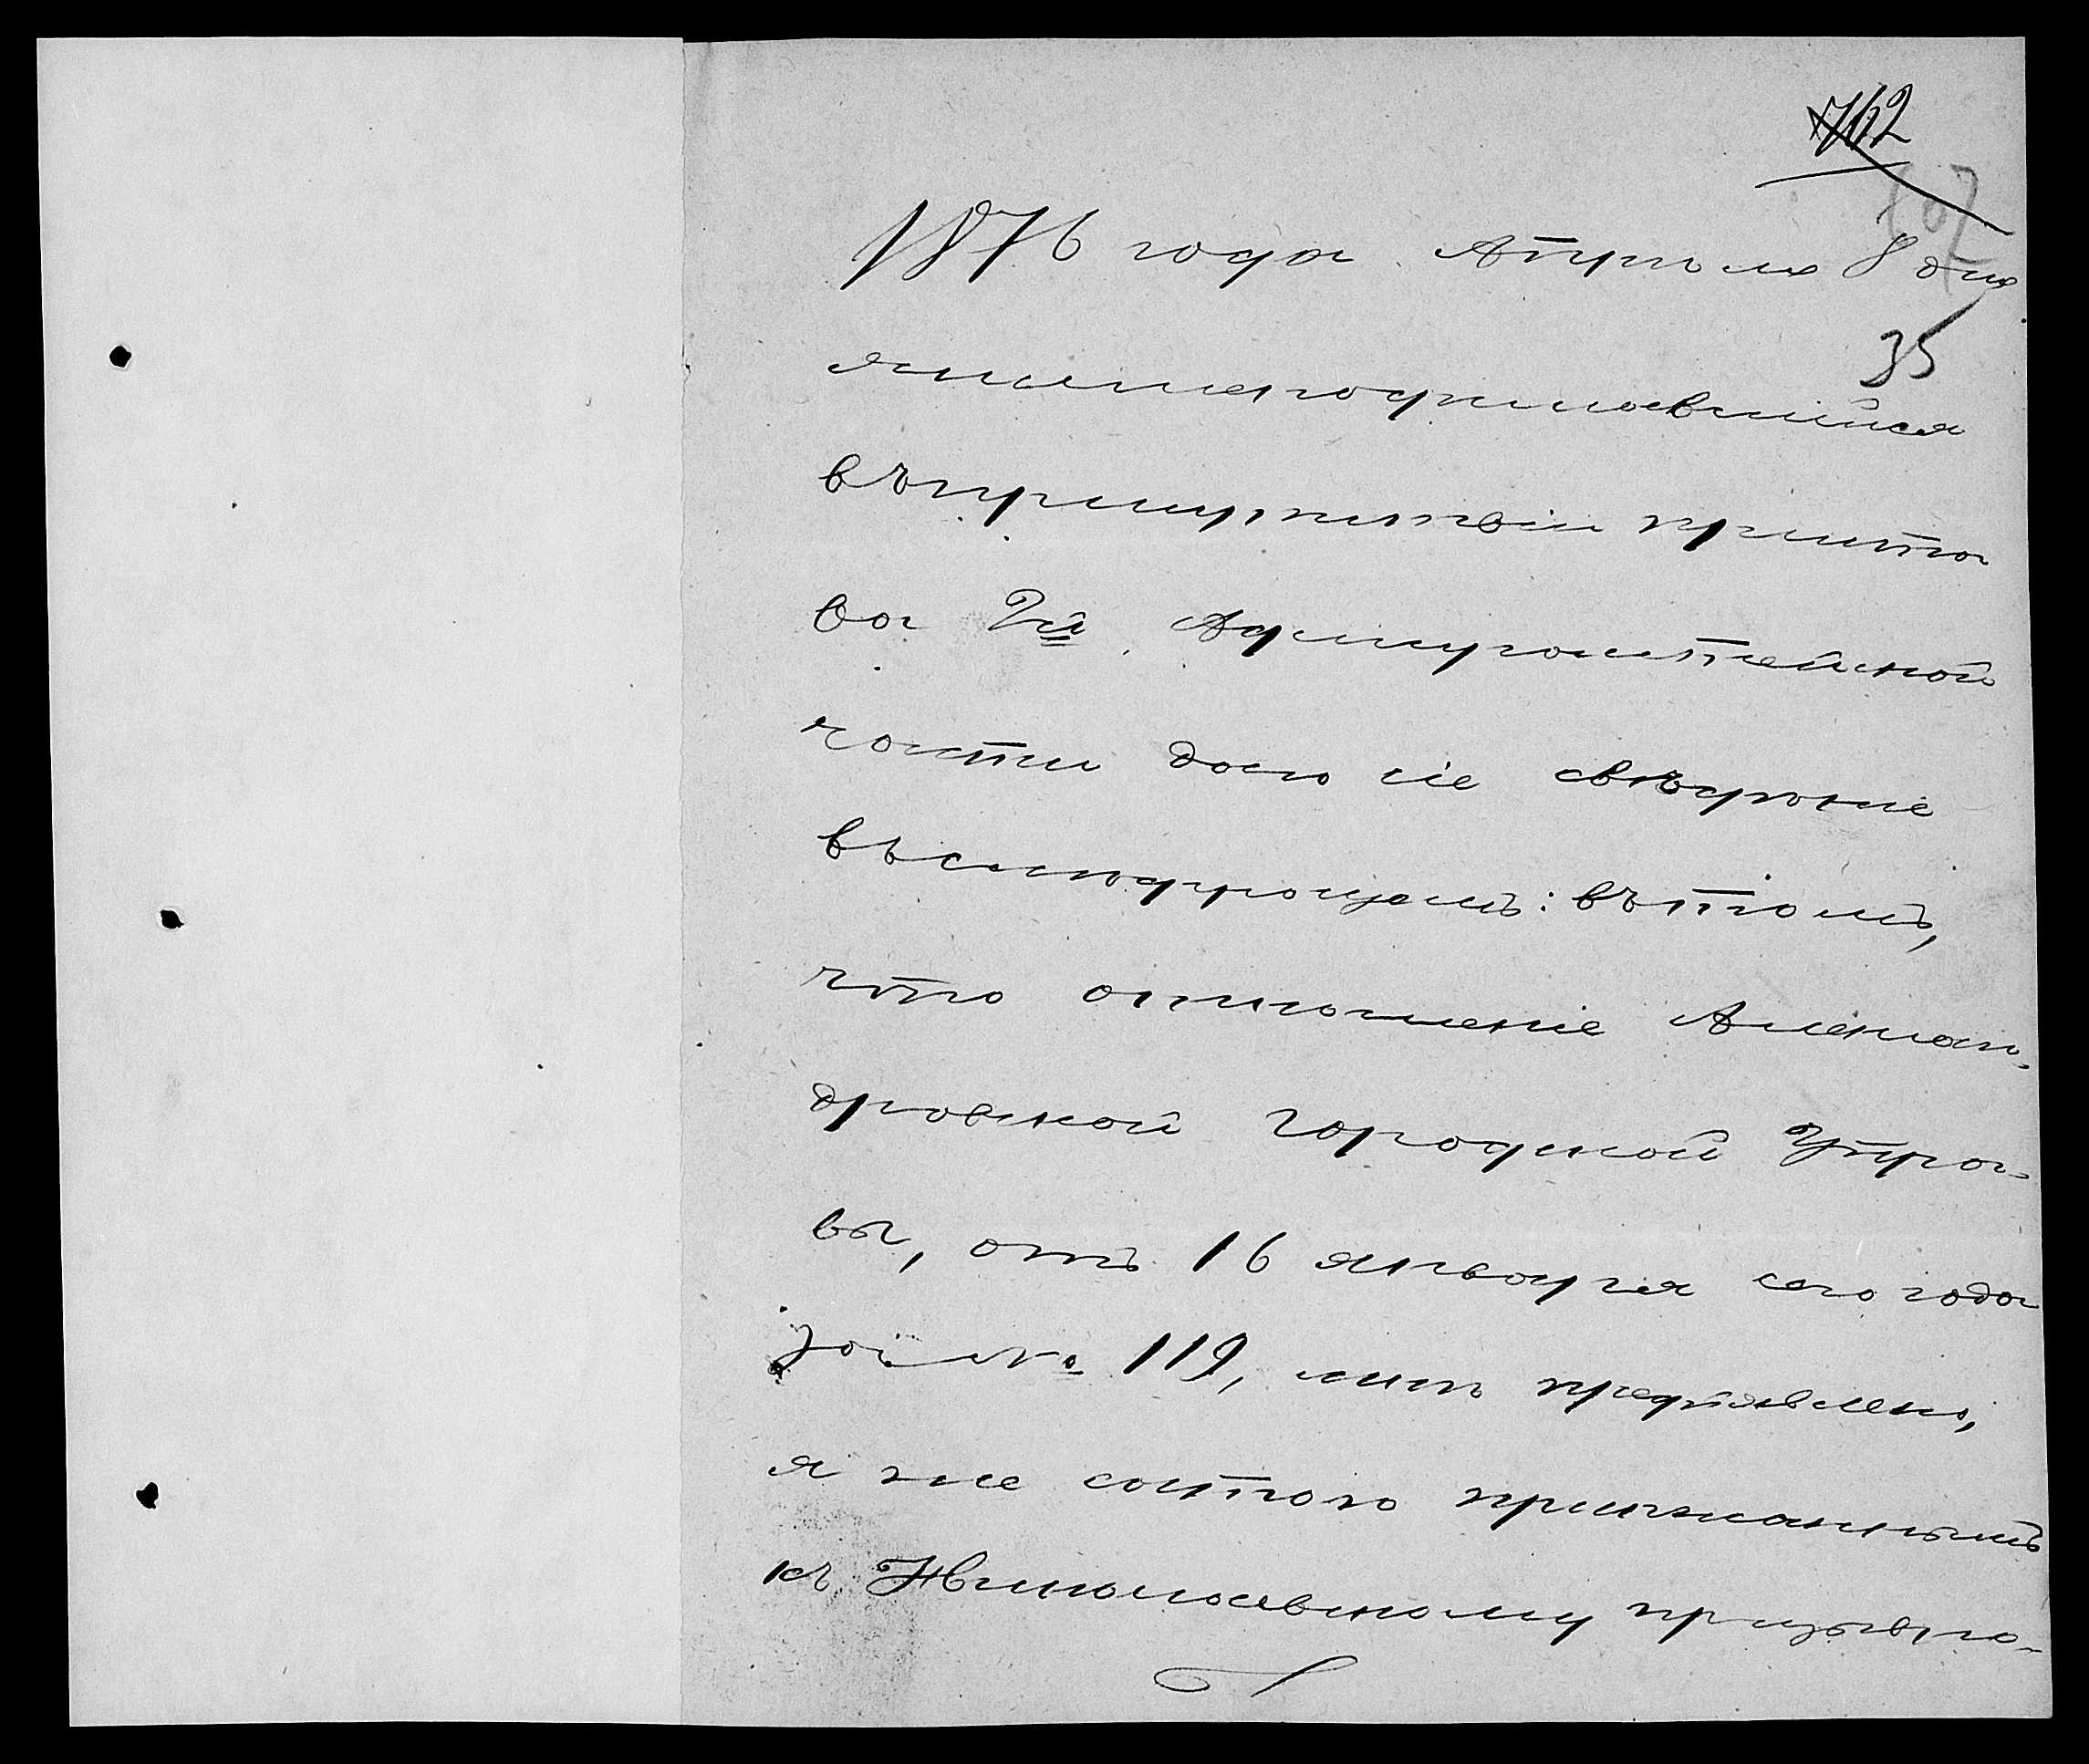 762
1876 года Апреля 8 дня
35
я нижеподписавшійся
въ присутствіи приста-
ва 2й Адмиралтейской
части даю сіе сведеніе
въ следующемъ: въ томъ,
что отношеніе Алексан-
дровской Городской Упра-
вы, отъ 16 января сего года
за № 119, мне предъявлено,
я же состою приписаннымъ
къ Николаевскому призывно-